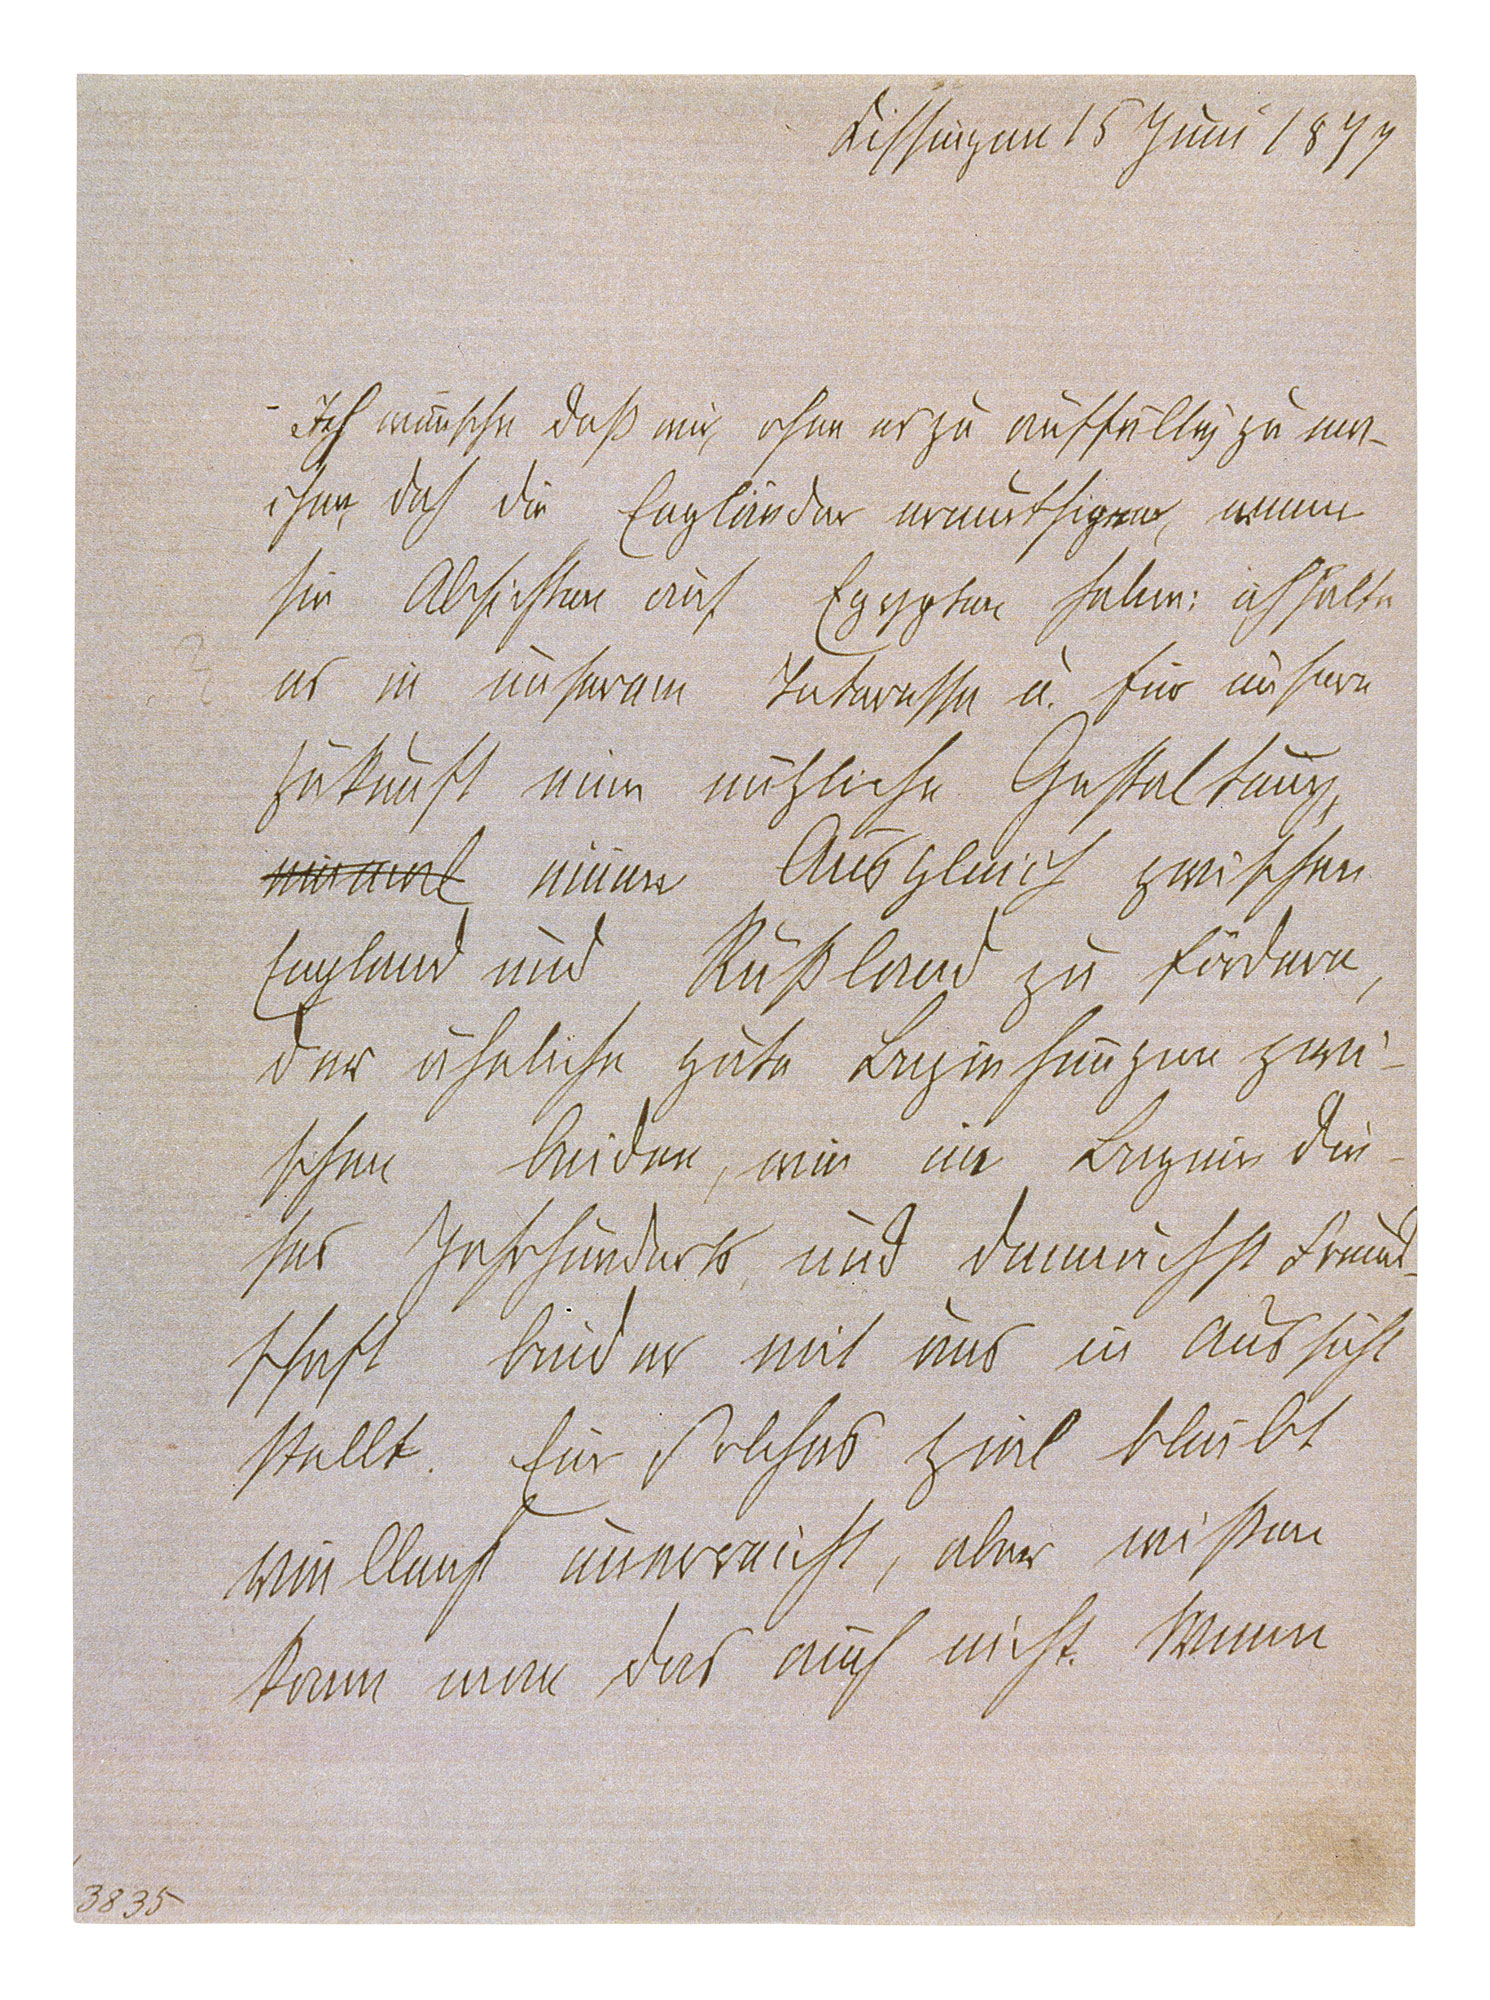 Kissingen 15 Juni 1877
Ich wünsche daß wir, ohne es zu auffällig zu ma-
chen, doch die Engländer ermuthigen, wenn
sie Absichten auf Egypten haben: ich halte
es in unserem Interesse u. für unsere
Zukunft eine nützliche Gestaltung,
einen Ausgleich zwischen
England und Rußland zu fördern,
der ähnliche gute Beziehungen zwi-
schen beiden, wie im Beginn die-
ses Jahrhunderts, und demnächst Freund-
schaft beider mit uns in Aussicht
stellt. Ein solches Ziel bleibt
vielleicht unerreicht, aber wissen
kann man das auch nicht. Wenn
3835